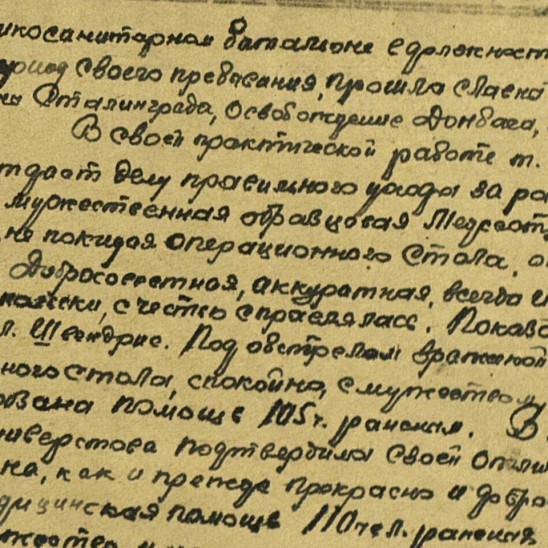 икосанитарном баталионе в должност
ериод своего пребывания, прошла славн
на Сталинграда, Освобождение Донбаса,
В своей практической работе т.
тдает делу правильного ухода за ра
мужественная образцовая Медсест
не покидая операционного стола, о
Добросовестная, аккуратная, всегда и
с честью справлялась. Показа
л. Швендрис. Под обстрелом вражеской
ного стола, спокойно, с мужеством
рована помощь 105 ч. раненым. В
ниверстова подтвердила своей отли
на, как и прежде прекрасно и добро
дицинская помощь 110 чел. раненых